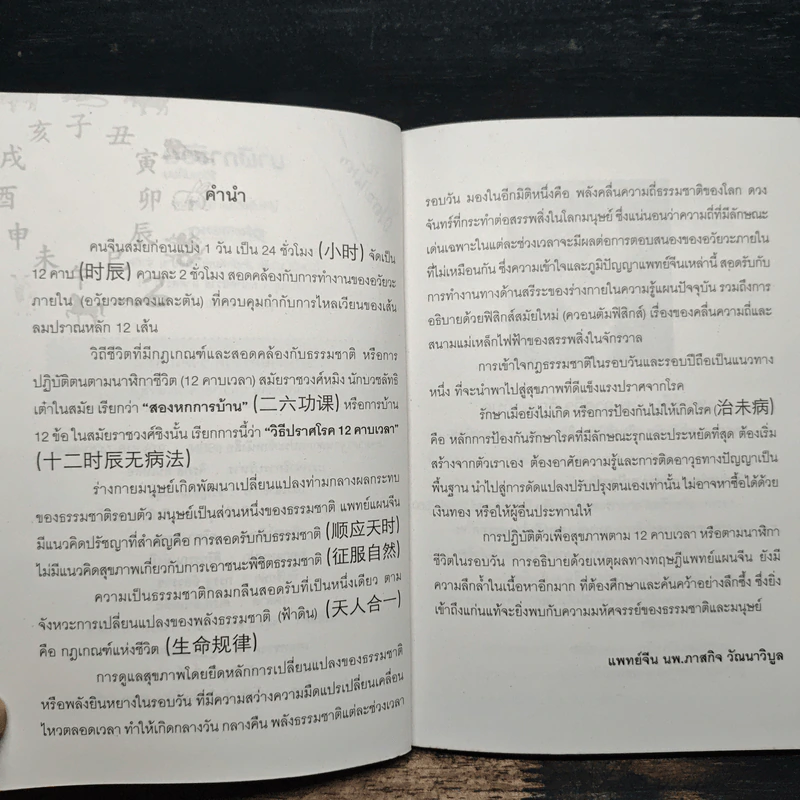 亥 子 丑
戌 寅
酉 卯
申 辰
未 巳
คำนำ
คนจีนสมัยก่อนแบ่ง 1 วัน เป็น 24 ชั่วโมง (小时) จัดเป็น
12 คาบ (时辰) คาบละ 2 ชั่วโมง สอดคล้องกับการทำงานของอวัยวะ
ภายใน (อวัยวะกลวงและตัน) ที่ควบคุมกำกับการไหลเวียนของเส้น
ลมปราณหลัก 12 เส้น
วิถีชีวิตที่มีกฎเกณฑ์และสอดคล้องกับธรรมชาติ หรือการ
ปฏิบัติตนตามนาฬิกาชีวิต (12 คาบเวลา) สมัยราชวงศ์หมิง นักบวชลัทธิ
เต๋าในสมัย เรียกว่า “สองหกการบ้าน” (二六功课) หรือการบ้าน
12 ข้อ ในสมัยราชวงศ์ชิงนั้น เรียกการนี้ว่า “วิธีปราศโรค 12 คาบเวลา”
(十二时辰无病法)
ร่างกายมนุษย์เกิดพัฒนาเปลี่ยนแปลงท่ามกลางผลกระทบ
ของธรรมชาติรอบตัว มนุษย์เป็นส่วนหนึ่งของธรรมชาติ แพทย์แผนจีน
มีแนวคิดปรัชญาที่สำคัญคือ การสอดรับกับธรรมชาติ (顺应天时)
ไม่มีแนวคิดสุขภาพเกี่ยวกับการเอาชนะพิชิตธรรมชาติ (征服自然)
ความเป็นธรรมชาติกลมกลืนสอดรับที่เป็นหนึ่งเดียว ตาม
จังหวะการเปลี่ยนแปลงของพลังธรรมชาติ (ฟ้าดิน) (天人合一)
คือ กฎเกณฑ์แห่งชีวิต (生命规律)
การดูแลสุขภาพโดยยึดหลักการเปลี่ยนแปลงของธรรมชาติ
หรือพลังยินหยางในรอบวัน ที่มีความสว่างความมืดแปรเปลี่ยนเคลื่อน
ไหวตลอดเวลา ทำให้เกิดกลางวัน กลางคืน พลังธรรมชาติแต่ละช่วงเวลา
รอบวัน มองในอีกมิติหนึ่งคือ พลังคลื่นความถี่ธรรมชาติของโลก ดวง
จันทร์ที่กระทำต่อสรรพสิ่งในโลกมนุษย์ ซึ่งแน่นอนว่าความถี่ที่มีลักษณะ
เด่นเฉพาะในแต่ละช่วงเวลาจะมีผลต่อการตอบสนองของอวัยวะภายใน
ที่ไม่เหมือนกัน ซึ่งความเข้าใจและภูมิปัญญาแพทย์จีนเหล่านี้ สอดรับกับ
การทำงานทางด้านสรีระของร่างกายในความรู้แผนปัจจุบัน รวมถึงการ
อธิบายด้วยฟิสิกส์สมัยใหม่ (ควอนตัมฟิสิกส์) เรื่องของคลื่นความถี่และ
สนามแม่เหล็กไฟฟ้าของสรรพสิ่งในจักรวาล
การเข้าใจกฎธรรมชาติในรอบวันและรอบปีถือเป็นแนวทาง
หนึ่ง ที่จะนำพาไปสู่สุขภาพที่ดีแข็งแรงปราศจากโรค
รักษาเมื่อยังไม่เกิด หรือการป้องกันไม่ให้เกิดโรค (治未病)
คือ หลักการป้องกันรักษาโรคที่มีลักษณะรุกและประหยัดที่สุด ต้องเริ่ม
สร้างจากตัวเราเอง ต้องอาศัยความรู้และการติดอาวุธทางปัญญาเป็น
พื้นฐาน นำไปสู่การดัดแปลงปรับปรุงตนเองเท่านั้น ไม่อาจหาซื้อได้ด้วย
เงินทอง หรือให้ผู้อื่นประทานให้
การปฏิบัติตัวเพื่อสุขภาพตาม 12 คาบเวลา หรือตามนาฬิกา
ชีวิตในรอบวัน การอธิบายด้วยเหตุผลทางทฤษฎีแพทย์แผนจีน ยังมี
ความลึกล้ำในเนื้อหาอีกมาก ที่ต้องศึกษาและค้นคว้าอย่างลึกซึ้ง ซึ่งยิ่ง
เข้าถึงแก่นแท้จะยิ่งพบกับความมหัศจรรย์ของธรรมชาติและมนุษย์
แพทย์จีน นพ.ภาสกิจ วัณนาวิบูล